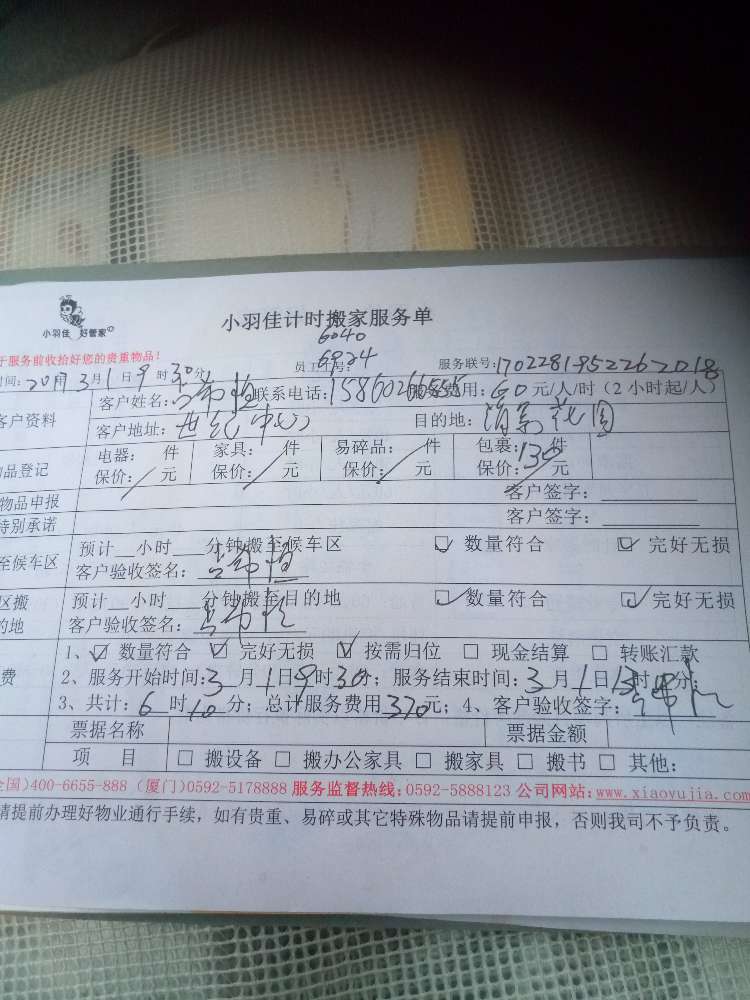 小羽佳 好管家
小羽佳计时搬家服务单
于服务前收拾好您的贵重物品!
6040
员工 号: 6924
服务联号:170228195226 2018
时间:2017 3月1日9时30分
客户姓名: 联系电话:158602 费用:60元/人/时(2小时起/人)
客户资料
客户地址:世纪中心 目的地:清景花园
品登记 电器: 件 家具: 件 易碎品: 件 包裹: 件
保价: 元 保价: 元 保价: 元 保价: 元
物品申报 客户签字:
特别承诺 客户签字:
至候车区 预计 小时 分钟搬至候车区 ☑ 数量符合 ☑ 完好无损
客户验收签名:
区搬 预计 小时 分钟搬至目的地 ☑ 数量符合 ☑ 完好无损
的地 客户验收签名:
1、☑ 数量符合 ☑ 完好无损 ☑ 按需归位 □ 现金结算 □ 转账汇款
费 2、服务开始时间:3月1日9时30分;服务结束时间:3月1日 时 分;
3、共计:6时10分;总计服务费用370元;4、客户验收签字:
票据名称 票据金额
项 目 □ 搬设备 □ 搬办公家具 □ 搬家具 □ 搬书 □ 其他:
全国)400-6655-888 (厦门)0592-5178888 服务监督热线:0592-5888123 公司网站:www.xiaoyujia.com
请提前办理好物业通行手续,如有贵重、易碎或其它特殊物品请提前申报,否则我司不予负责。